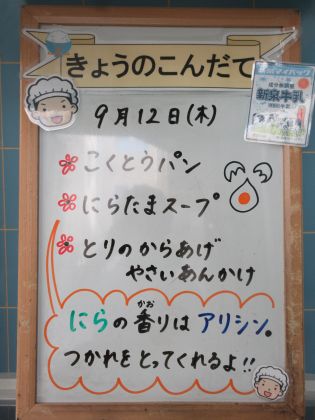 きょうのこんだて
新泉牛乳
9月12日(木)
こくとうパン
にらたまスープ
とりのからあげ
やさいあんかけ
かお
にらの香りはアリシン。
つかれをとってくれるよ!!